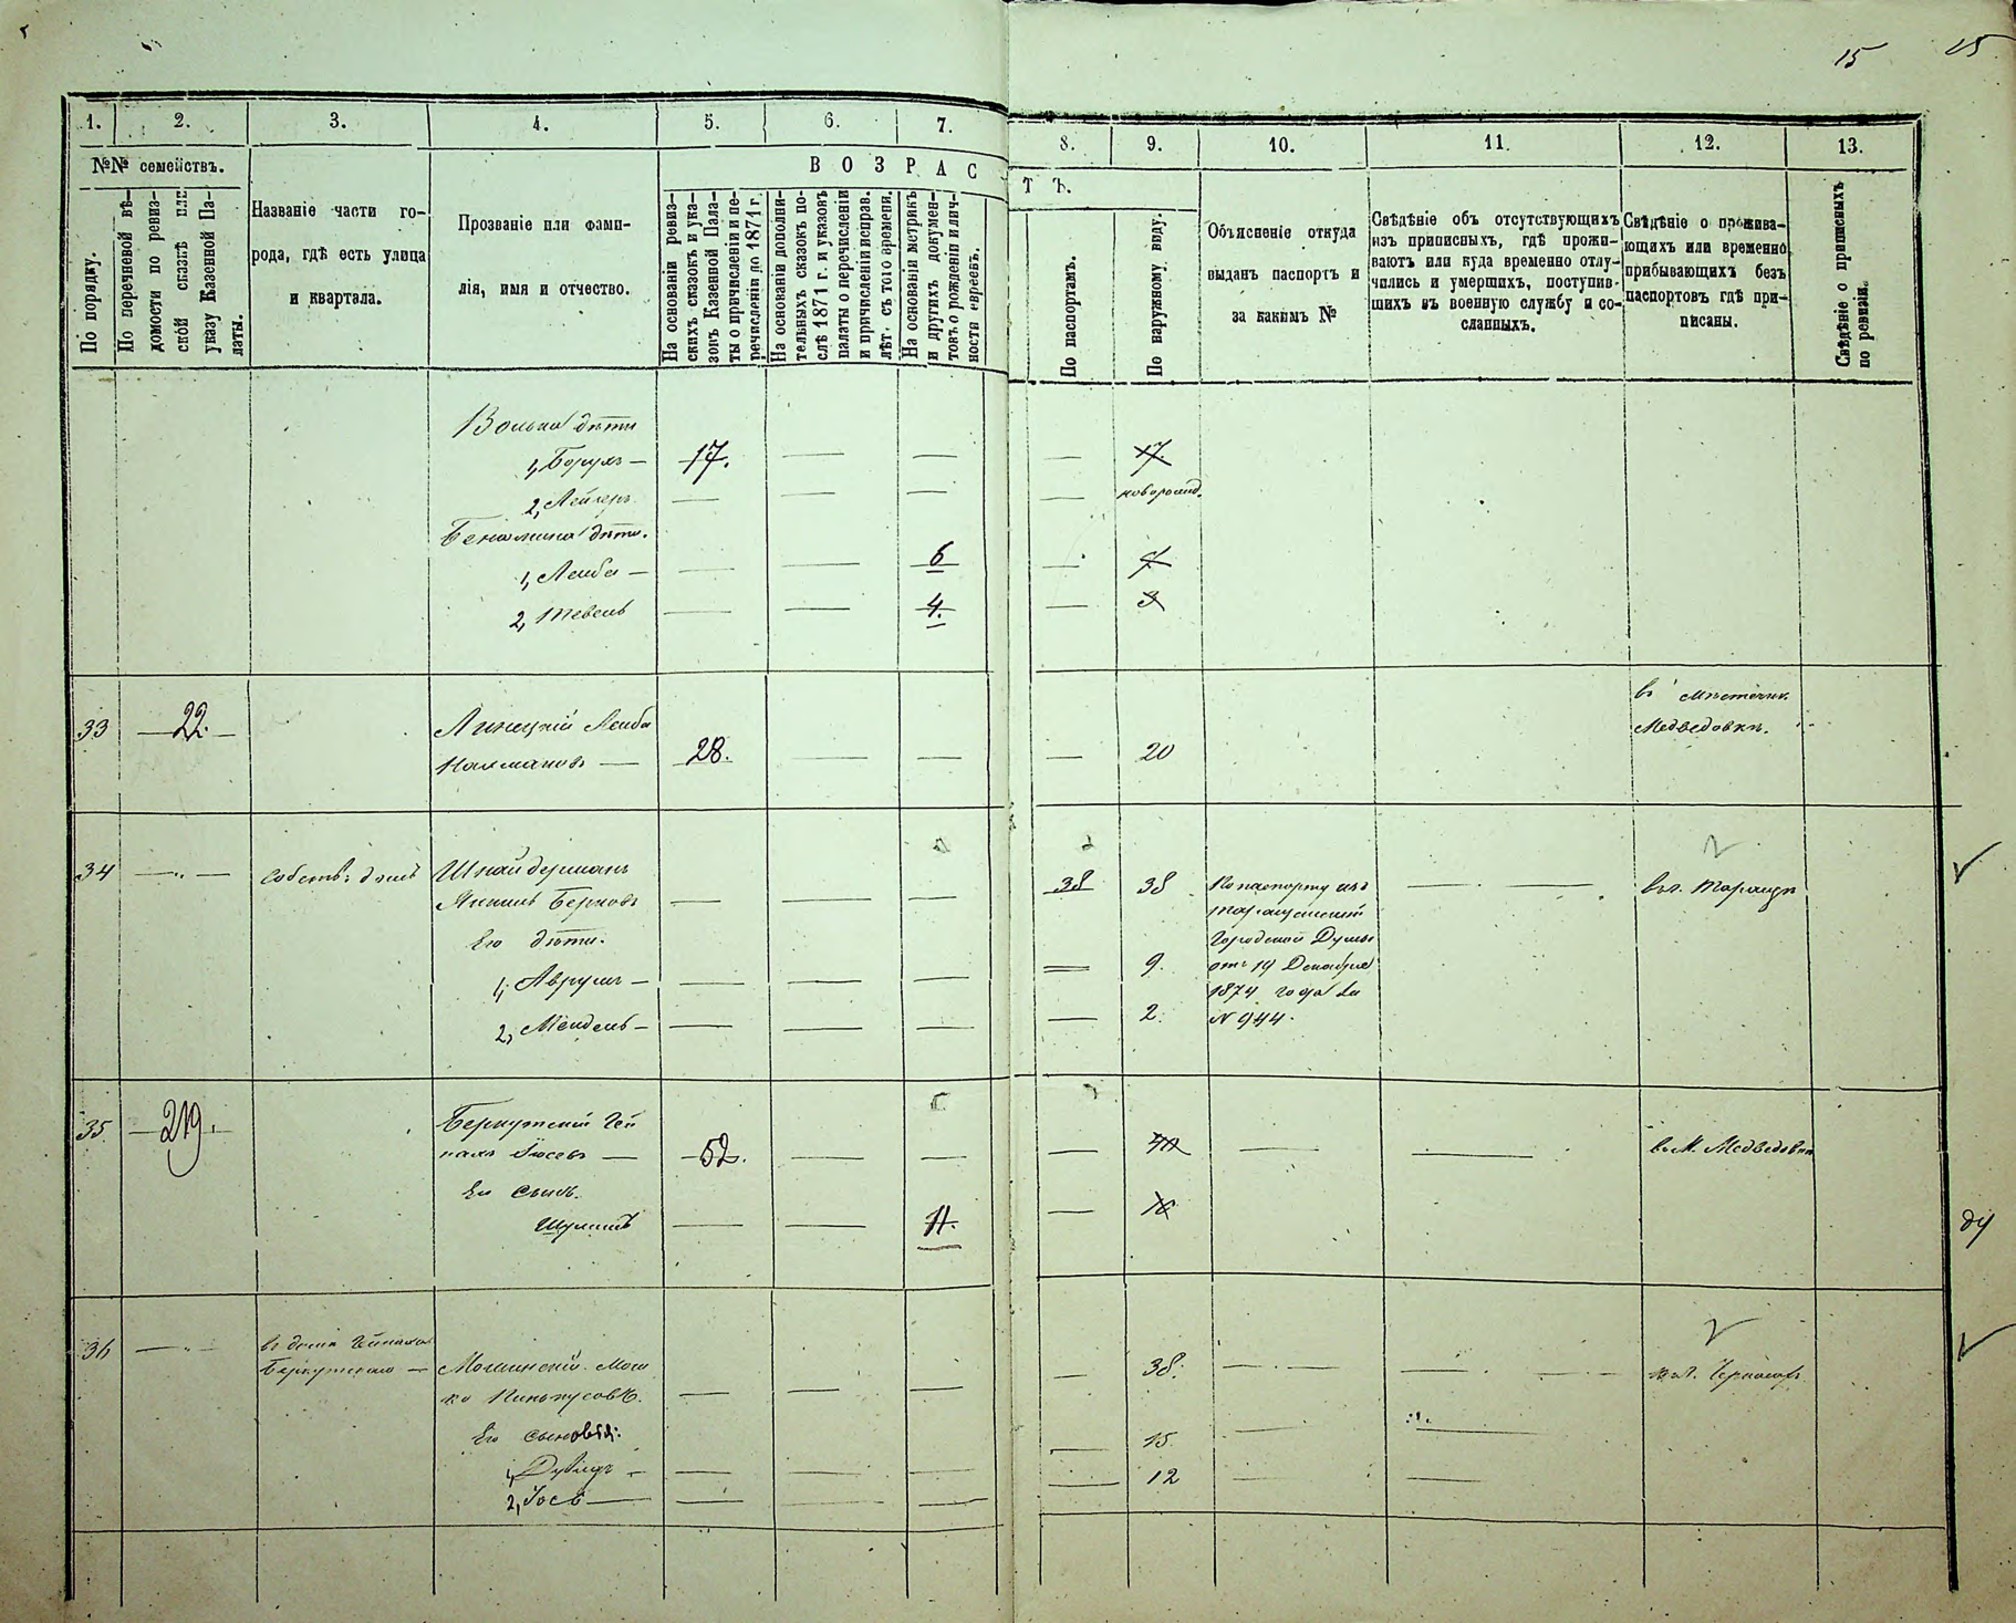 15
1. 2. 3. 4. 5. 6. 7. 8. 9. 10. 11. 12. 13.
№№ семействъ.
По порядку.
По перечневой вѣ-
домости по ревиз-
ской сказкѣ или
указу Казенной Па-
латы.
Названіе части го-
рода, гдѣ есть улица
и квартала.
Прозваніе или фами-
лія, имя и отчество.
ВОЗРАСТЪ.
На основаніи ревиз-
скихъ сказокъ и ука-
зовъ Казенной Пала-
ты о причисленіи и пе-
речисленіи до 1871 г.
На основаніи дополни-
тельныхъ сказокъ по-
слѣ 1871 г. и указовъ
палаты о перечисленіи
и причисленіи исправ.
лѣт. съ того времени.
На основаніи метрикъ
и другихъ докумен-
товъ о рожденіи и лич-
ности евреевъ.
По паспортамъ.
По наружному виду.
Объясненіе откуда
выданъ паспортъ и
за какимъ №
Свѣдѣніе объ отсутствующихъ
изъ приписныхъ, гдѣ прожи-
ваютъ или куда временно отлу-
чились и умершихъ, поступив-
шихъ въ военную службу и со-
сланныхъ.
Свѣдѣніе о прожива-
ющихъ или временно
прибывающихъ безъ
паспортовъ гдѣ при-
писаны.
Свѣдѣніе о приписныхъ
по ревизіи.
Волька дѣти
1, Борухъ — 17. — — — 17.
2, Лейзеръ — — — — новорожд.
Беньямина дѣти.
1, Лейба — — — 6 —
2, Тевель — — 4. — 3
33 22. Линецкій Лейба
Нахмановъ — 28. — — — 20
въ мѣстечк.
Медведовкѣ.
34 — „ — Собств: домъ Шнайдерманъ
Янкель Берковъ — — — 38 38
Его дѣти.
1, Аврумъ — — — — = 9.
2, Мендель — — — — — 2.
По паспорту изъ
Таращанской
Городской Думы
отъ 19 Декабря
1874 года за
N 944.
въ г. Таращѣ
35 219. Беркутскій Гей
нахъ Іосевъ — 52. — — —
Его сынъ.
Шулимъ — — 11. —
въ М. Медведовкѣ
36 — „ — въ домѣ Гейнаха
Беркутскаго — Мошинскій Мош
ко Пинькусовъ. — — — — 38.
Его сыновья:
1, Дувидъ — — — — — 15
2, Іось — — — — — 12
въ г. Черкасахъ